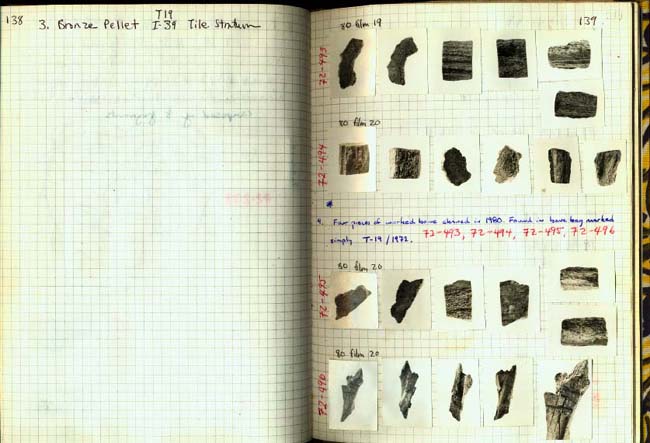 138
T19
3. Bronze Pellet I-39 Tile Stratum
139
80 film 19
72-493
80 film 20
72-494
*
4. Four pieces of worked bone cleaned in 1980. Found in bone bag marked
simply T-19/1972. 72-493, 72-494, 72-495, 72-496
80 film 20
72-495
80 film 20
72-496